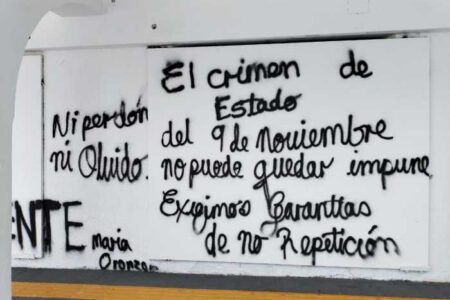 Ni perdón
ni Olvido.
ENTE
maria
El crimen de
Estado
del 9 de noviembre
no puede quedar impune
Exigimos Garantías
de no Repetición